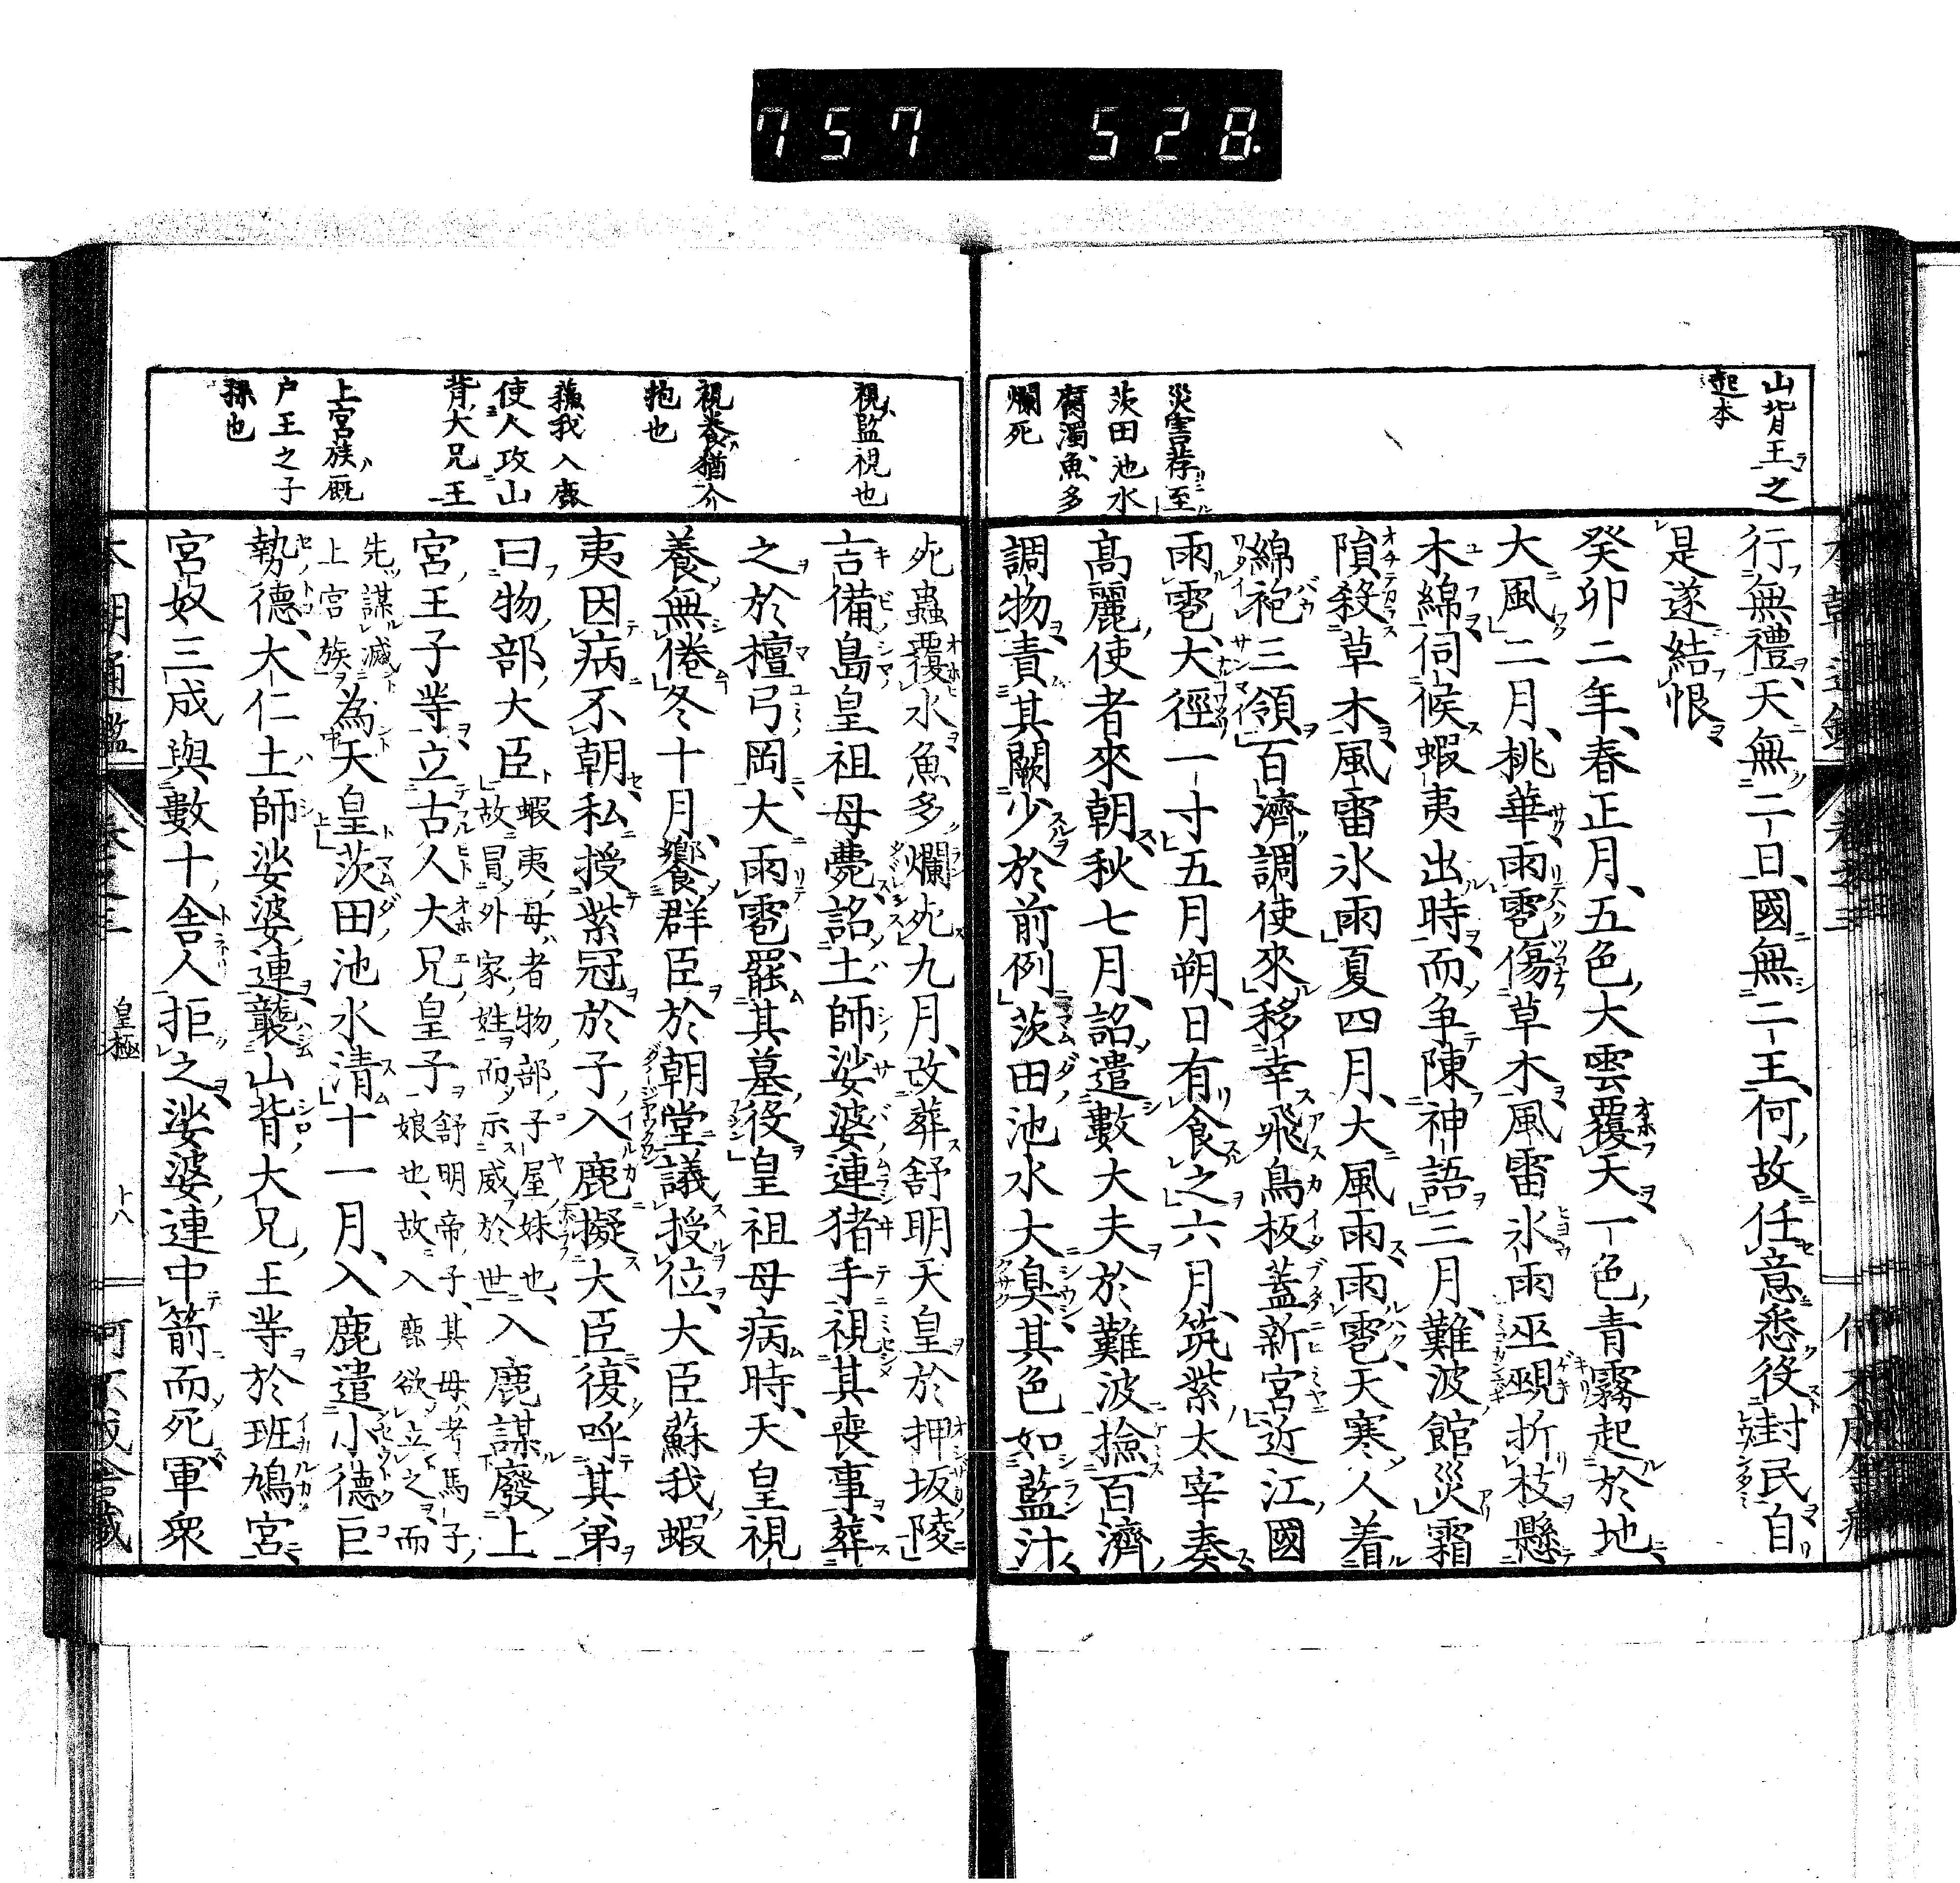 757 528.
山背王之
起本
災害荐至
茨田池水
腐濁魚多
爛死
行無禮天無二日國無二王何故任意悉役封民自
是遂結恨
癸卯二年春正月五色大雲覆天一色青霧起於地
大風二月桃華雨雹傷草木風雷氷雨巫覡折枝懸
木綿伺候蝦夷出時而争陳神語三月難波館災霜
隕殺草木風雷氷雨夏四月大風雨雨雹天寒人着
綿袍三領百濟調使來移幸飛鳥板蓋新宮近江國
雨雹大徑一寸五月朔日有食之六月筑紫太宰奏
高麗使者來朝秋七月詔遣數大夫於難波撿百濟
調物責其闕少於前例茨田池水大臭其色如藍汁
視監視也
視養猶介
抱也
蘇我入鹿
使人攻山
背大兄王
上宮族厩
户王之子
孫也
死蟲覆水魚多爛死九月改葬舒明天皇於押坂陵
吉備島皇祖母薨詔土師娑婆連猪手視其喪事葬
之於檀弓岡大雨雹罷其墓役皇祖母病時天皇視
養無倦冬十月饗群臣於朝堂議授位大臣蘇我蝦
夷因病不朝私授紫冠於子入鹿擬大臣復呼其弟
曰物部大臣蝦夷母者物部子屋妹也故冒外家姓而示威於世入鹿謀廢上
宮王子等立古人大兄皇子舒明帝子其母者馬子娘也故入鹿欲立之而
先謀滅上宮族為天皇茨田池水清十一月入鹿遣小德巨
勢德太仁土師娑婆連襲山背大兄王等於班鳩宮
宮奴三成與數十舎人拒之娑婆連中箭而死軍衆
本朝通鑑 卷之三 皇極 十八